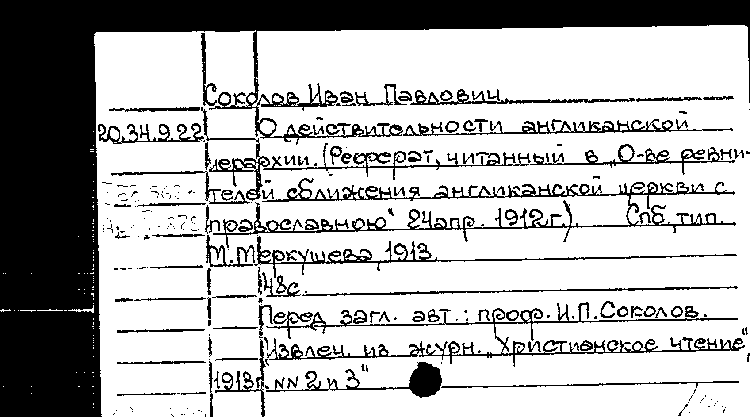 Соколов, Иван Павлович.
20.34.9.22 О действительности англиканской
иерархии. (Реферат, читанный в „О-ве ревни-
телей сближения англиканской церкви с
православною“ 24 апр. 1912 г.). Спб, тип.
М. Меркушева, 1913.
48с.
Перед загл. авт.: проф. И.П. Соколов.
Извлеч. из журн. „Христианское чтение“,
1913г. NN 2 и 3“